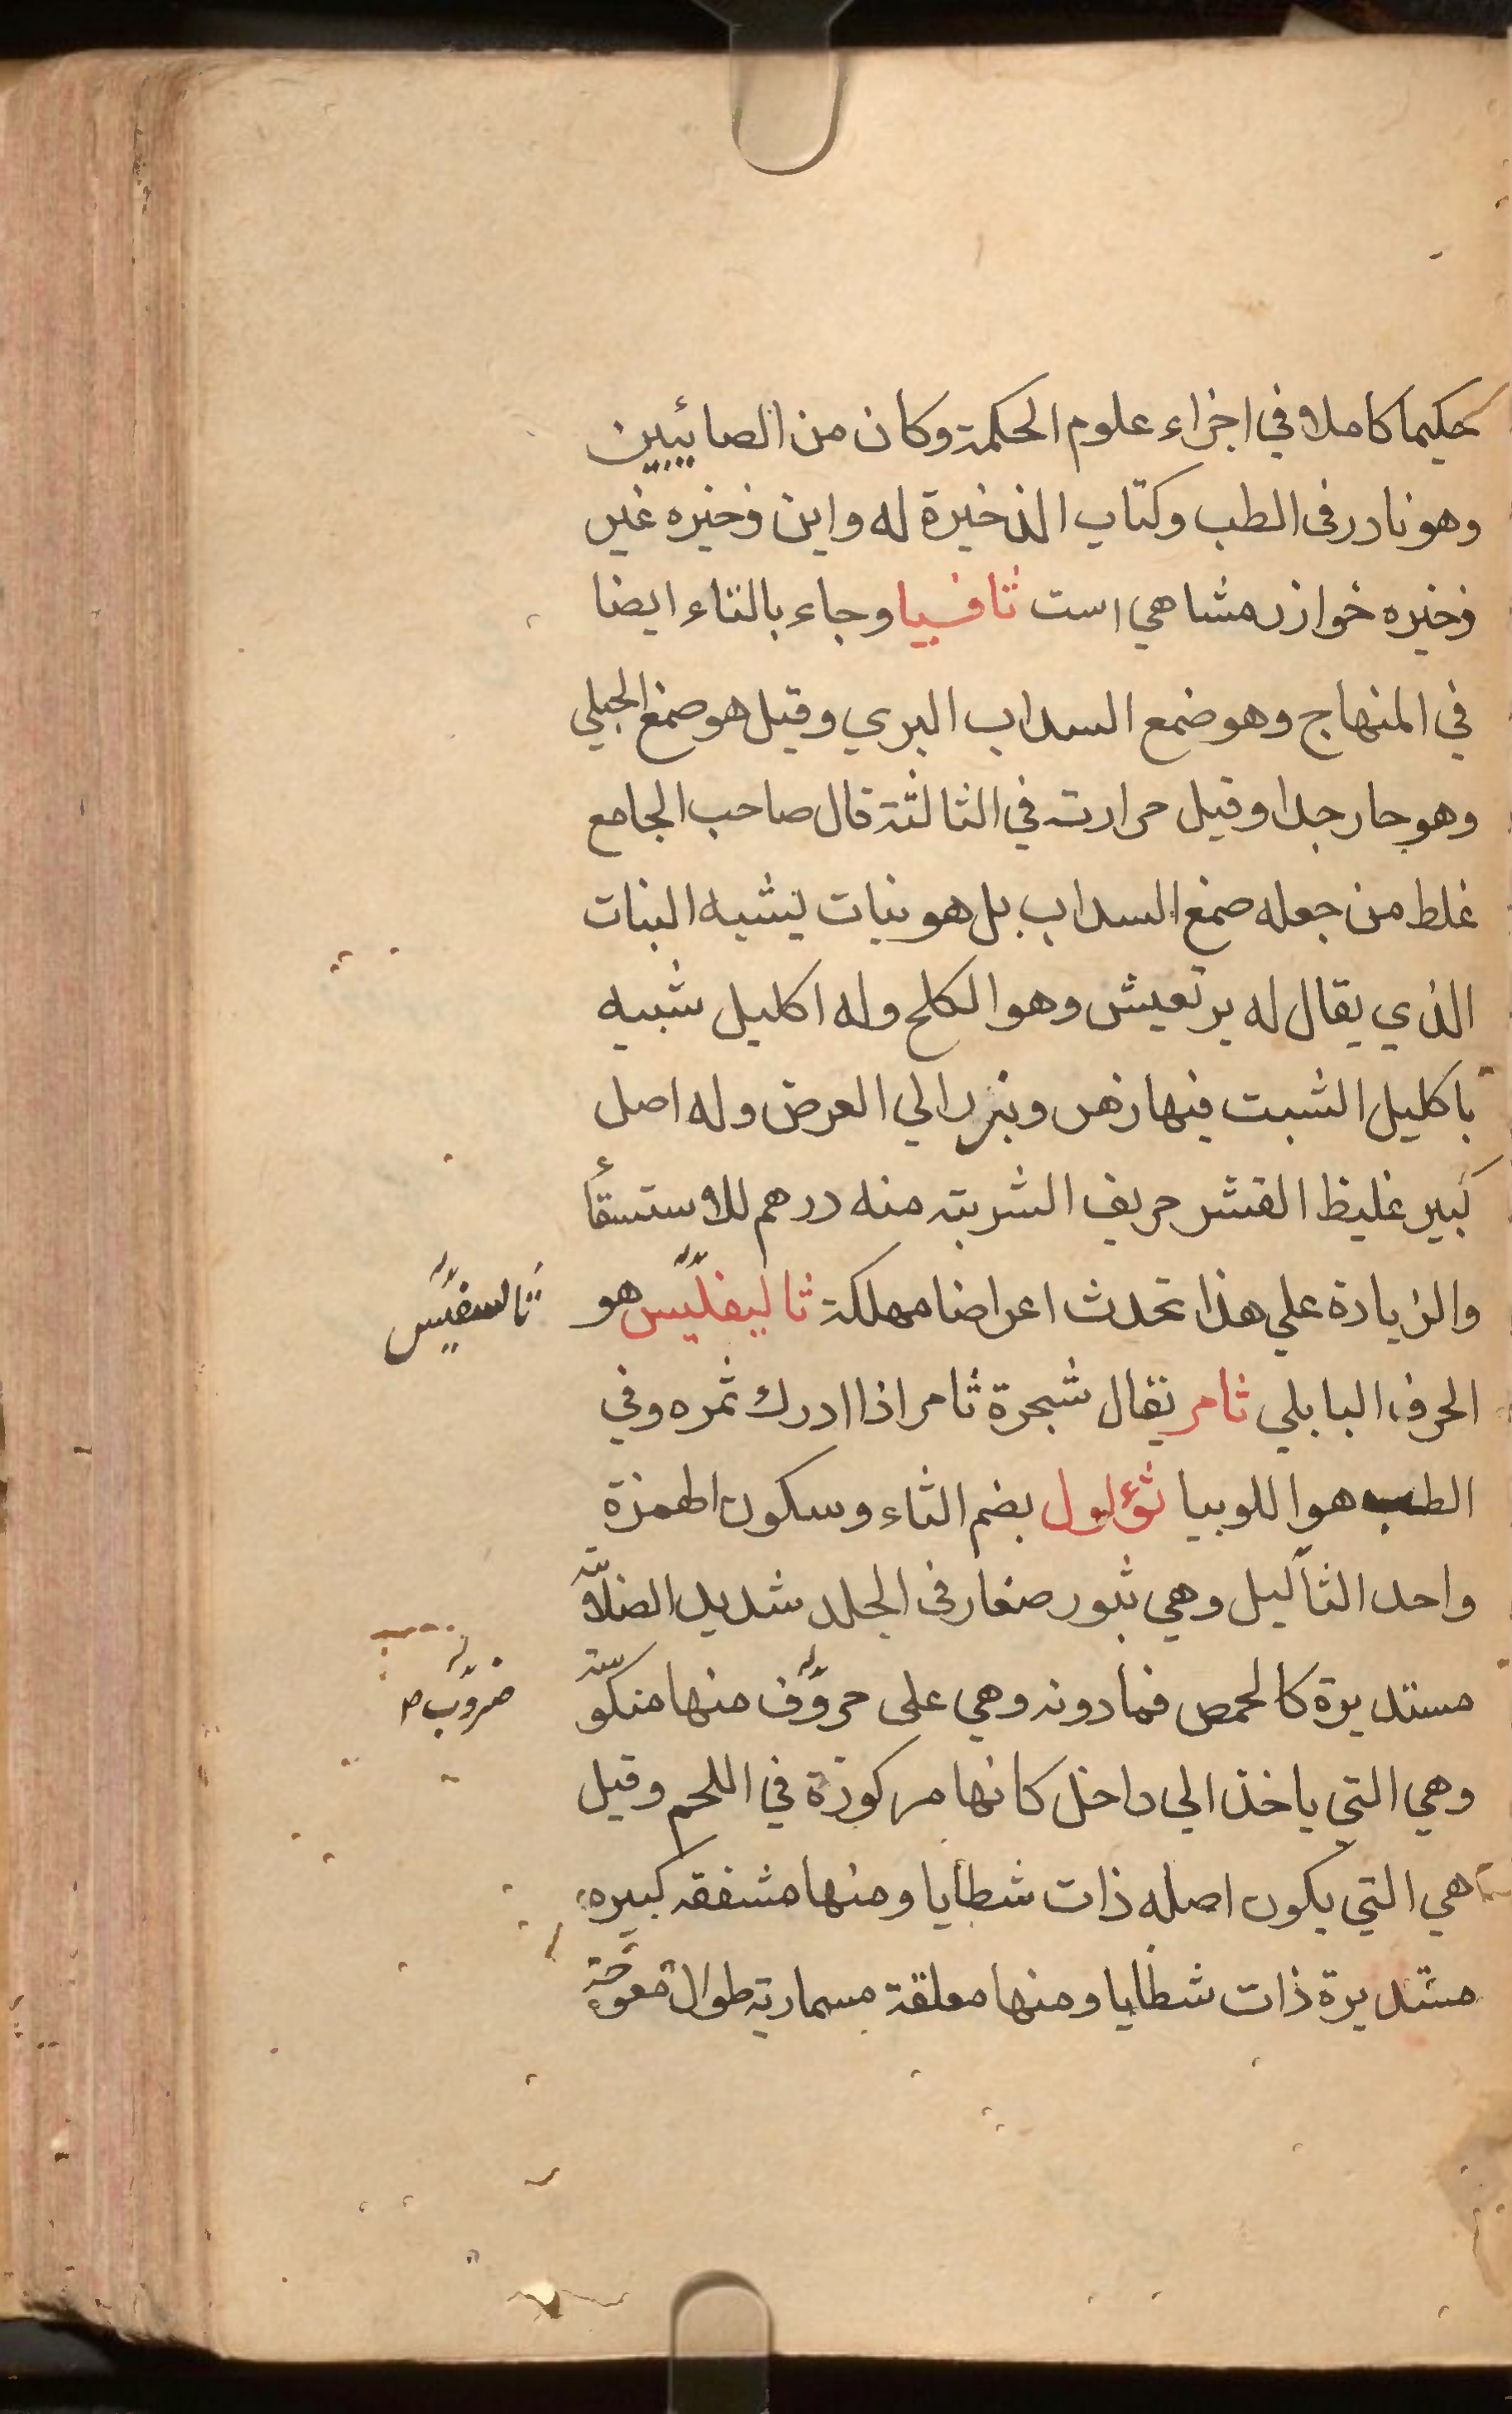 حكيما كاملا في اجزاء علوم الحكمة وكان من الصائبين
وهو نادر في الطب وكتاب الذخيرة له واين ذخيره غير
ذخيره خوارزمشاهي است ثافسيا وجاء بالتاء ايضا
في المنهاج وهو ضمع السداب البري وقيل هو صمغ الجبلي
وهو حار جدا وقيل حرارته في الثالثة قال صاحب الجامع
غلط من جعله صمغ السداب بل هو نبات يشبه النبات
الذي يقال له برتعيش وهو الكلح وله اكليل شبيه
باكليل الشبت فيها زهر وبزر الي العرض وله اصل
كبير غليظ القشر حريف الشربة منه درهم للاستسقأ
والزيادة علي هذا تحدث اعراضا مهلكة ثاليفليس هو
ثالسفيس
الحرف البابلي ثامر يقال شجرة ثامر اذا ادرك ثمره وفي
الطب هو اللوبيا ثؤلول بضم الثاء وسكون الهمزة
واحد الثآليل وهي بثور صغار في الجلد شديد الصلابة
مستديرة كالحمص فما دونه وهي على حروف منها منكوسة
ضروب ص
وهي التي ياخذ الي داخل كانها مركوزة في اللحم وقيل
هي التي يكون اصله ذات شظايا ومنها مشفقه كبيره
مستديرة ذات شظايا ومنها معلقة مسمارية طوال معوجة